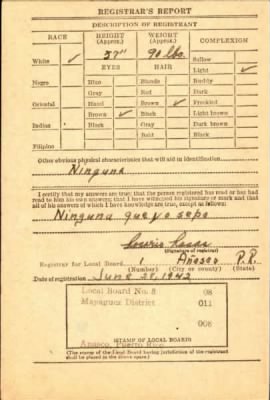 REGISTRAR'S REPORT
DESCRIPTION OF REGISTRANT
RACE HEIGHT (Approx.) WEIGHT (Approx.) COMPLEXION
White ✓ 57" 90 lbs. Sallow
EYES HAIR Light ✓
Negro Blue Blonde Ruddy
Gray Red Dark
Oriental Hazel Brown ✓ Freckled
Brown ✓ Black Light brown
Indian Black Gray Dark brown
Bald Black
Filipino
Other obvious physical characteristics that will aid in identification
Ninguna
I certify that my answers are true; that the person registered has read or has had
read to him his own answers; that I have witnessed his signature or mark and that
all of his answers of which I have knowledge are true, except as follows:
Ninguna que yo sepa
(Signature of registrar)
Registrar for Local Board 1 Añasco P.R.
(Number) (City or county) (State)
Date of registration June 28, 1942
Local Board No. 8 08
Mayaguez District 011
008
Anasco, Puerto Rico
STAMP OF LOCAL BOARD
(The stamp of the Local Board having jurisdiction of the registrant
shall be placed in the above space.)